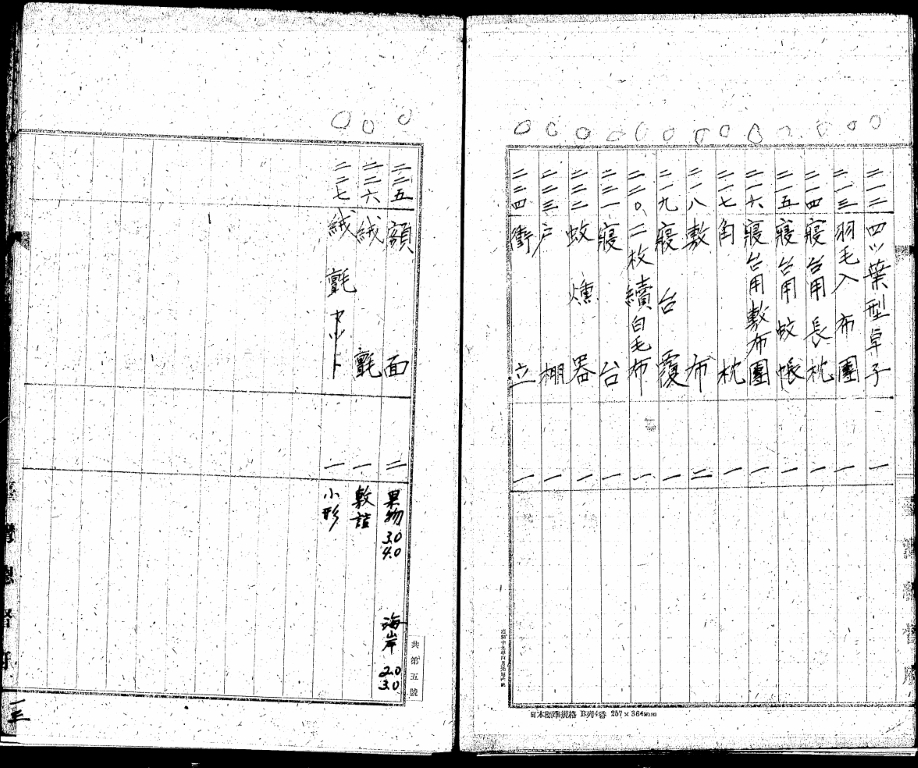 二一二 四ッ葉型卓子 一
二一三 羽毛入布團 一
二一四 寢台用長枕 一
二一五 寢台用蚊帳 一
二一六 寢台用敷布團 一
二一七 角枕 一
二一八 敷布 二
二一九 寢台覆 一
二二〇、二枚續白毛布 一
二二一 寢台 一
二二二 蚊燻器 一
二二三 戸棚 一
二二四 衝立 一
日本標準規格 B列4番 257×364mm
二二五 額面 二 果物 3.0 4.0 海岸 2.0 3.0
二二六 絨氈 一 敷詰
二二七 絨氈カット 一 小形
共第五號
臺灣總督府
一三